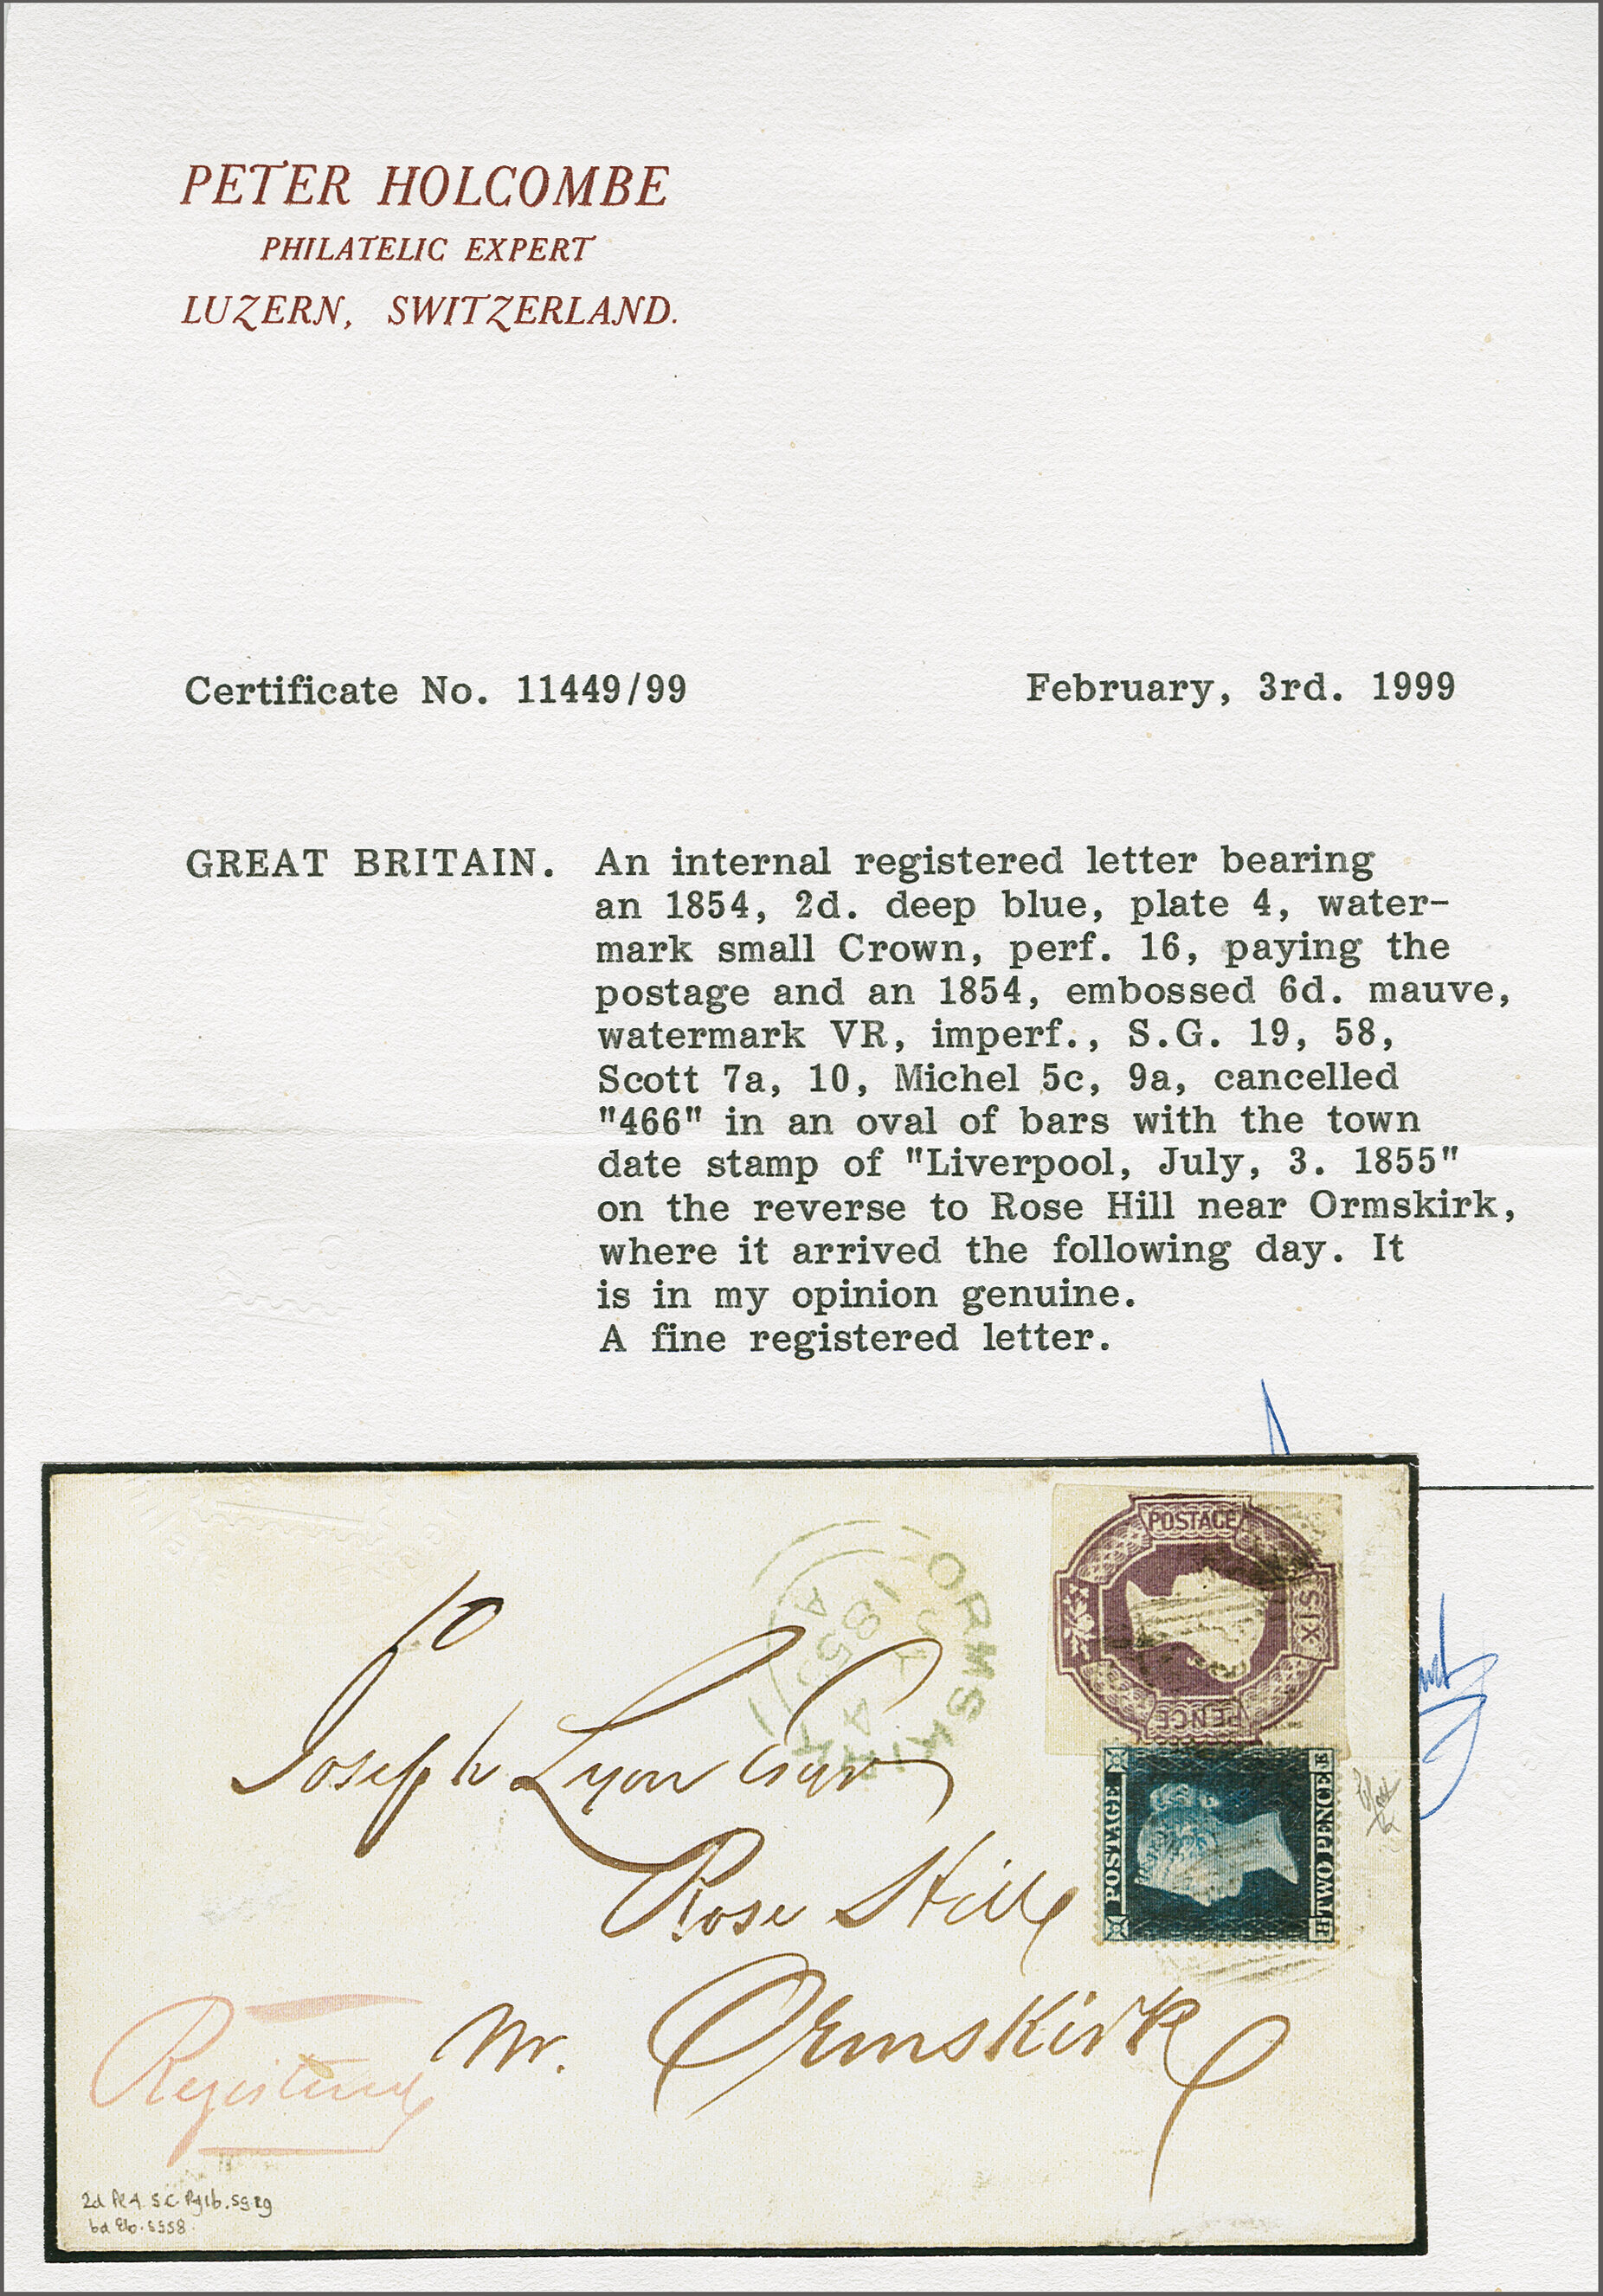 PETER HOLCOMBE
PHILATELIC EXPERT
LUZERN, SWITZERLAND.
Certificate No. 11449/99
February, 3rd. 1999
GREAT BRITAIN. An internal registered letter bearing
an 1854, 2d. deep blue, plate 4, water-
mark small Crown, perf. 16, paying the
postage and an 1854, embossed 6d. mauve,
watermark VR, imperf., S.G. 19, 58,
Scott 7a, 10, Michel 5c, 9a, cancelled
"466" in an oval of bars with the town
date stamp of "Liverpool, July, 3. 1855"
on the reverse to Rose Hill near Ormskirk,
where it arrived the following day. It
is in my opinion genuine.
A fine registered letter.
POSTAGE
SIX
PENCE
ORMSKIRK
JY 4
1855
A
Joseph Lyon Esqr
Rose Hill
Nr. Ormskirk
POSTAGE
E
H TWO PENCE
Registered
2d Pl 4. S.C.